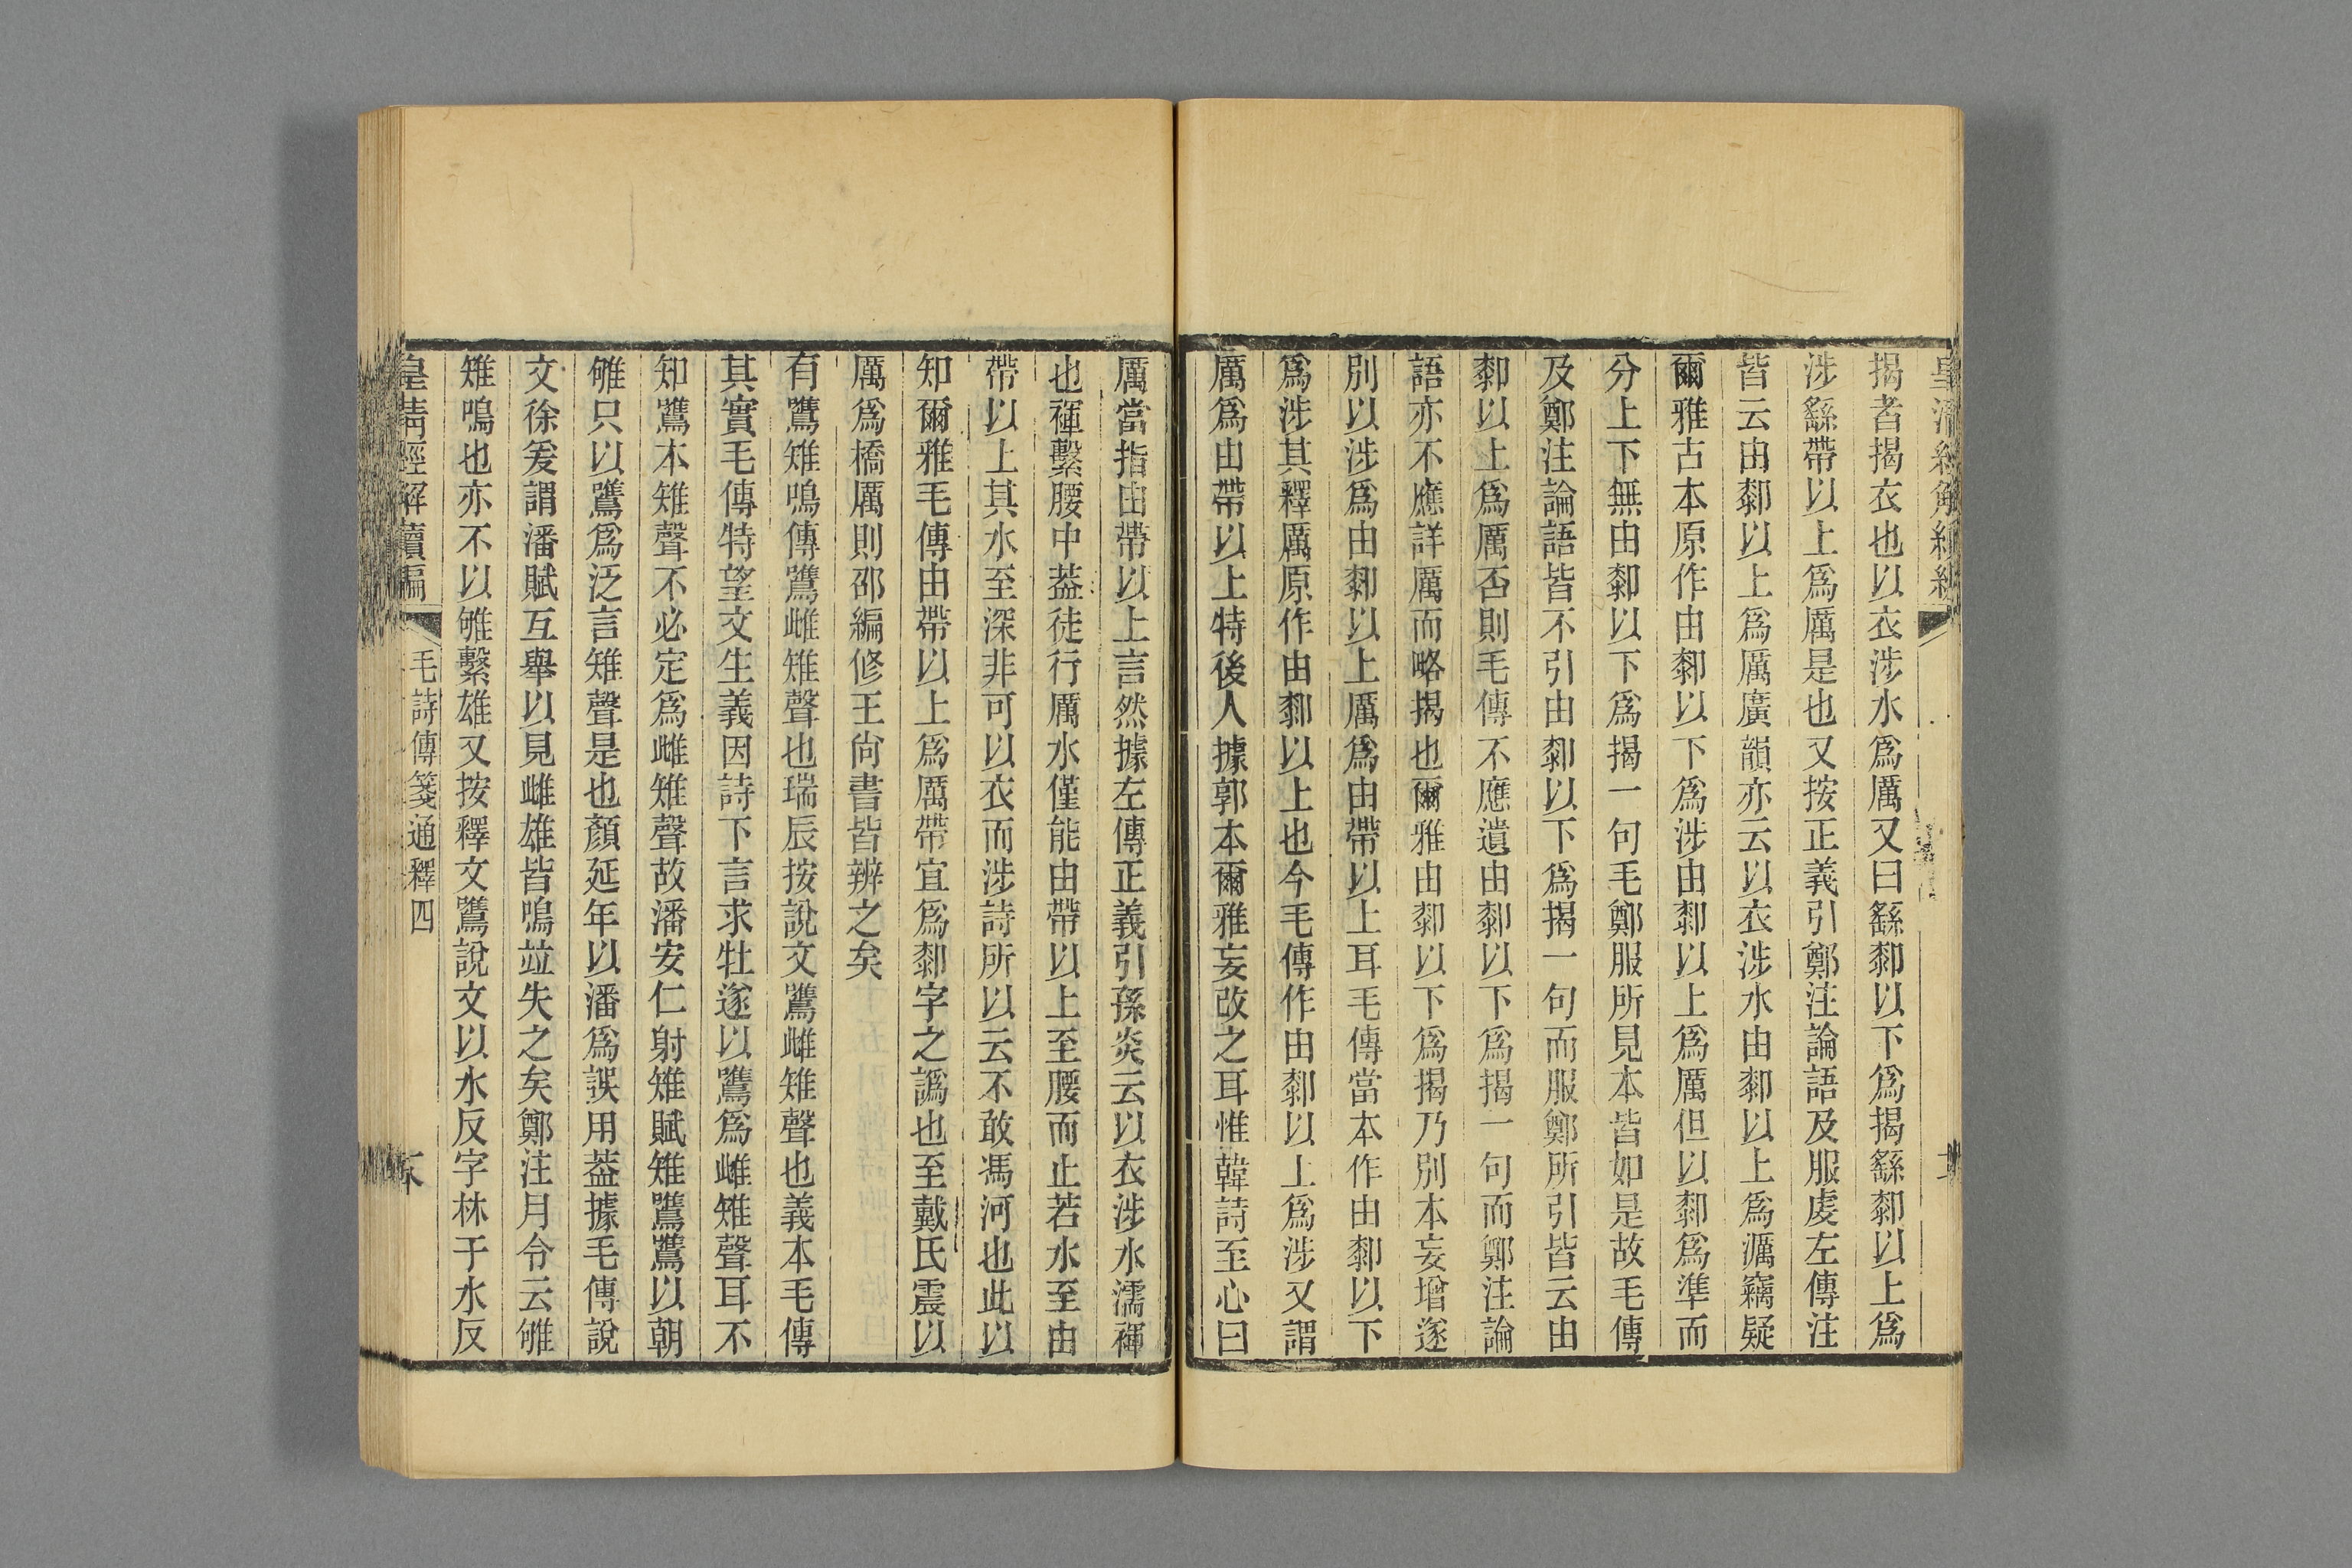 揭者揭衣也以衣涉水爲厲又曰繇厀以下爲揭繇厀以上爲
涉繇帶以上爲厲是也又按正義引鄭注論語及服虔左傳注
皆云由厀以上爲厲廣韻亦云以衣涉水由厀以上爲濿竊疑
爾雅古本原作由厀以下爲涉由厀以上爲厲但以厀爲準而
分上下無由厀以下爲揭一句毛鄭服所見本皆如是故毛傳
及鄭注論語皆不引由厀以下爲揭一句而服鄭所引皆云由
厀以上爲厲否則毛傳不應遺由厀以下爲揭一句而鄭注論
語亦不應詳厲而略揭也爾雅由厀以下爲揭乃別本妄增遂
別以涉爲由厀以上厲爲由帶以上耳毛傳當本作由厀以下
爲涉其釋厲原作由厀以上也今毛傳作由厀以上爲涉又謂
厲爲由帶以上特後人據郭本爾雅妄改之耳惟韓詩至心曰
厲當指由帶以上言然據左傳正義引孫炎云以衣涉水濡褌
也褌繫腰中葢徒行厲水僅能由帶以上至腰而止若水至由
帶以上其水至深非可以衣而涉詩所以云不敢馮河也此以
知爾雅毛傳由帶以上爲厲帶宜爲厀字之譌也至戴氏震以
厲爲橋厲則邵編修王尙書皆辨之矣
有鷕雉鳴傳鷕雌雉聲也瑞辰按說文鷕雌雉聲也義本毛傳
其實毛傳特望文生義因詩下言求牡遂以鷕爲雌雉聲耳不
知鷕本雉聲不必定爲雌雉聲故潘安仁射雉賦雉鷕鷕以朝
雊只以鷕爲泛言雉聲是也顏延年以潘爲誤用葢據毛傳說
文徐爰謂潘賦互舉以見雌雄皆鳴竝失之矣鄭注月令云雊
雉鳴也亦不以雊繫雄又按釋文鷕說文以水反字林于水反
皇淸經解續編
毛詩傳箋通釋四